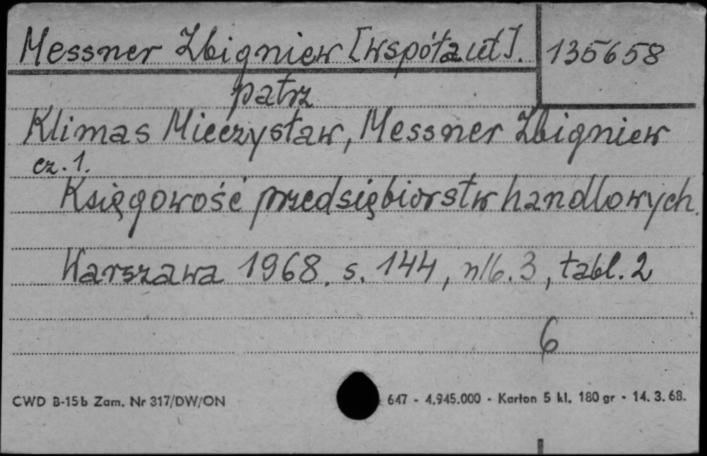 Messner Zbigniew [współaut]. 135658
patrz
Klimas Mieczysław, Messner Zbigniew
cz. 1.
Księgowość przedsiębiorstw handlowych.
Warszawa 1968. s. 144, nlb. 3, tabl. 2
6
CWD B-15b Zam. Nr 317/DW/ON 647 - 4.945.000 - Karton 5 kl. 180 gr - 14. 3. 68.